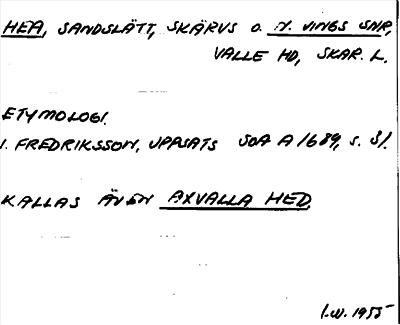 HEA, SANDSLÄTT, SKÄRVS O. N. VINGS SNR,
VALLE HD, SKAR. L.
ETYMOLOGI.
I. FREDRIKSSON, UPPSATS SOA A 1689, S. 81.
KALLAS ÄVEN AXVALLA HED.
I.W. 1955